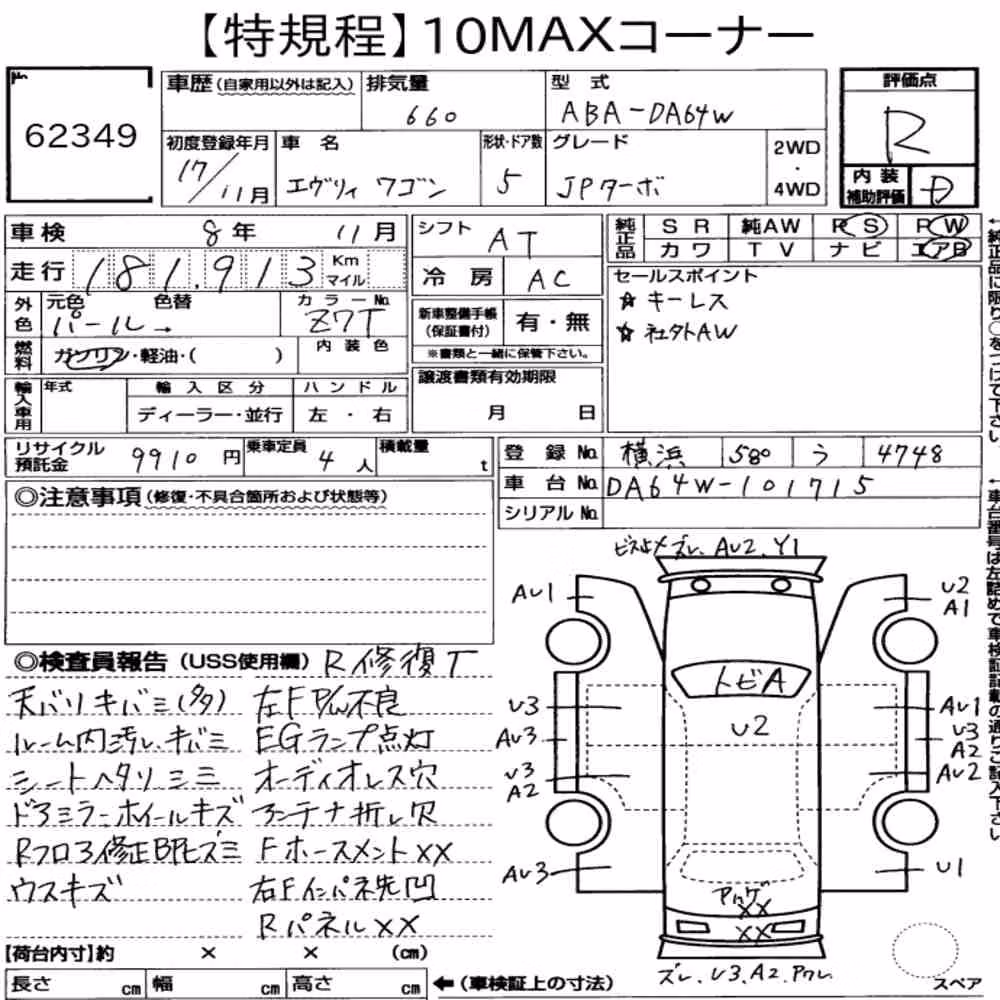 【特規程】10MAXコーナー
No
62349
車歴 (自家用以外は記入)
排気量
660
型 式
ABA-DA64W
評価点
R
初度登録年月
17/11月
車 名
エヴリィ ワゴン
形状・ドア数
5
グレード
JPターボ
2WD
・
4WD
内 装
補助評価
D
車検 8年 11月
シフト AT
純正品
SR 純AW PS PW
カワ TV ナビ エアB
走行 181,913 Km マイル
冷 房 AC
セールスポイント
☆ キーレス
☆ 社外AW
外色
元色 色替
パール→
カラーNo.
Z7T
新車整備手帳
(保証書付)
有・無
※書類と一緒に保管下さい。
燃料
ガソリン・軽油・( )
内装色
輸入車用
年式
輸入区分
ハンドル
ディーラー・並行
左・右
譲渡書類有効期限
月 日
リサイクル
預託金
9910 円
乗車定員
4 人
積載量
t
登 録 No. 横浜 580 う 4748
車 台 No. DA64W-101715
シリアル No.
◎注意事項 (修復・不具合箇所および状態等)
←純正品に限り○をつけて下さい。
←車台番号は左詰めで車検証記載の通りご記入下さい。
ビス止メ ズレ、AU2、Y1
AU1
U2
A1
トビA
U2
U3
AU3
U3
A2
AU1
U3
A2
AU2
AU3
U1
XX
XX
ズレ、U3、A2、ワレ
スペア
◎検査員報告 (USS使用欄) R修復T
天バリキバミ(多) 左FP/W不良
ルーム内汚レ、キバミ EGランプ点灯
シートヘタリシミ オーディオレス穴
ドアミラーホイールキズ アンテナ折レ穴
Rフロア修正
Fホースメント××
ウスキズ 右Fインパネ先凹
Rパネル××
【荷台内寸】約 × × (cm)
長さ cm 幅 cm 高さ cm
←(車検証上の寸法)